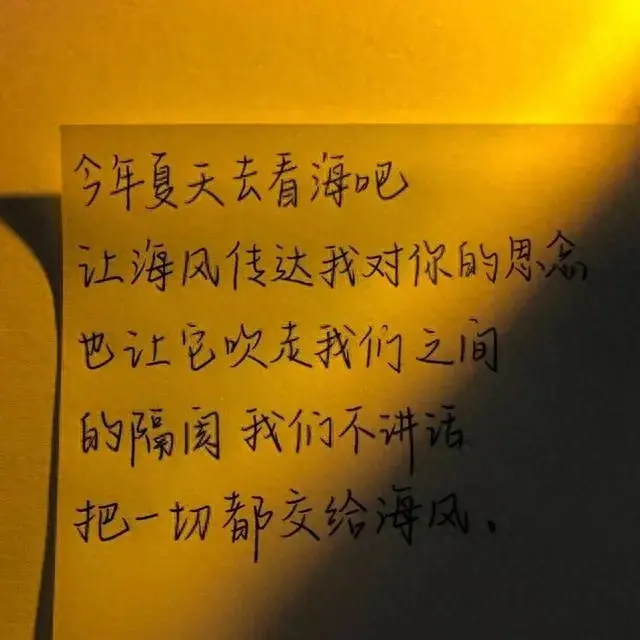 今年夏天去看海吧
让海风传达我对你的思念
也让它吹走我们之间
的隔阂 我们不讲话
把一切都交给海风.